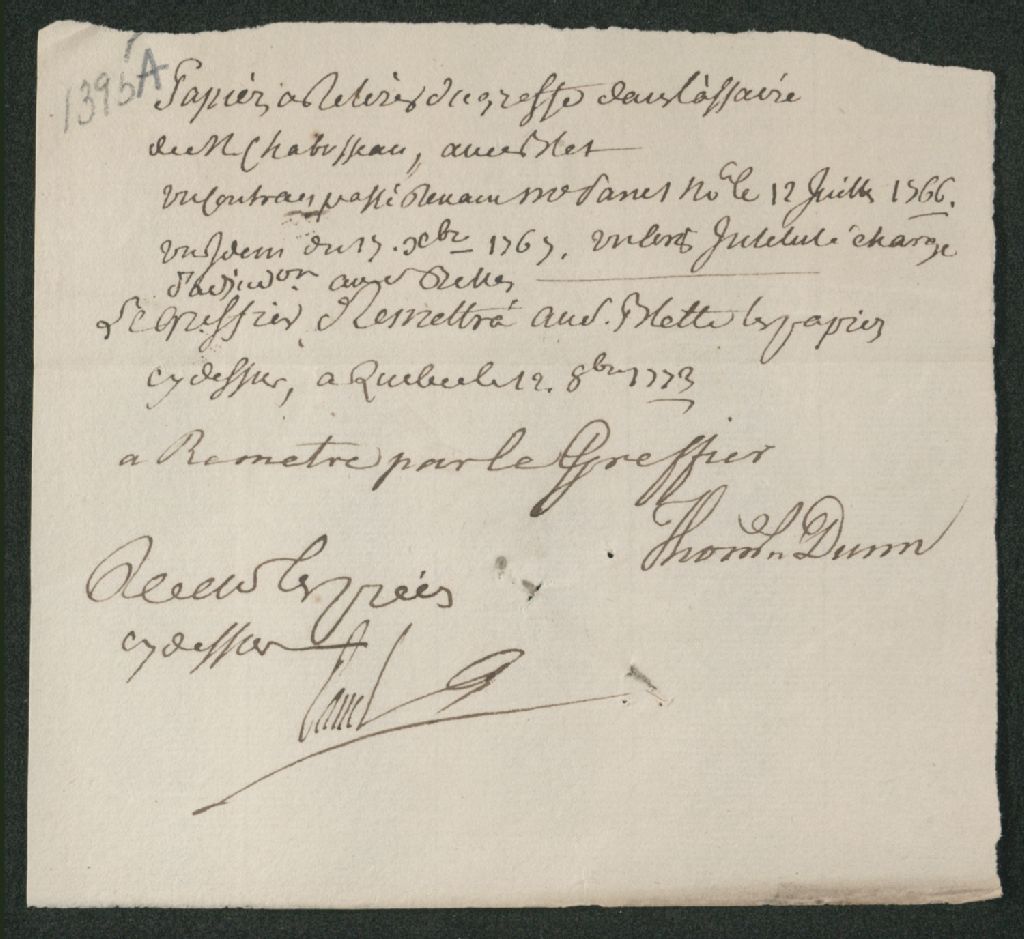 1395 A
Papiers a Retirer du greffe dans l'affaire
de M Chabosseau, avec
un contract passé devant me Panet No.re le 12 Juillet 1766.
un Idem du 17. xbre 1767, un Intitulé charge
d'adjud.on au d.
Le Greffier Remettra aud. les papiers
cy dessus, a Quebec le 12. 8bre 1773
a Rametre par le Greffier
Thom.s Dunn
Receu les pieces
cy dessus
Panet